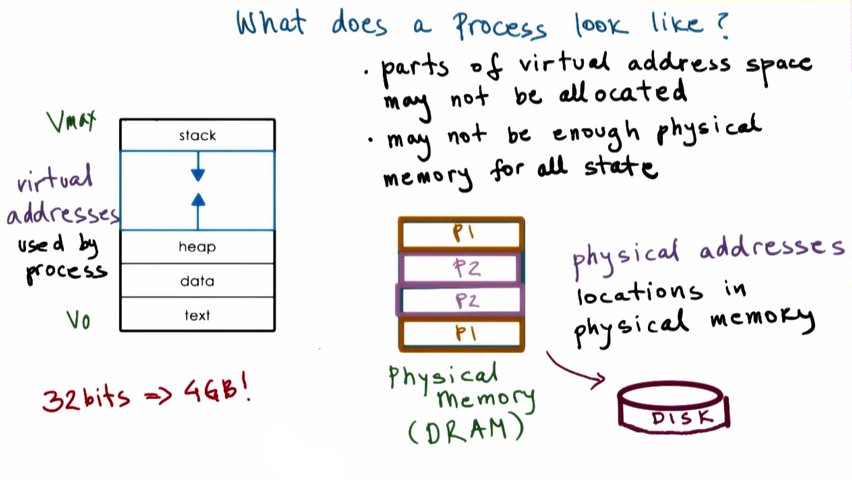 What does a Process look like?
• parts of virtual address space
may not be allocated
• may not be enough physical
memory for all state
Vmax
stack
virtual
addresses
used by
process
heap
data
text
V0
32bits => 4GB!
P1
P2
P2
P1
Physical
Memory
(DRAM)
physical addresses
locations in
physical memory
DISK